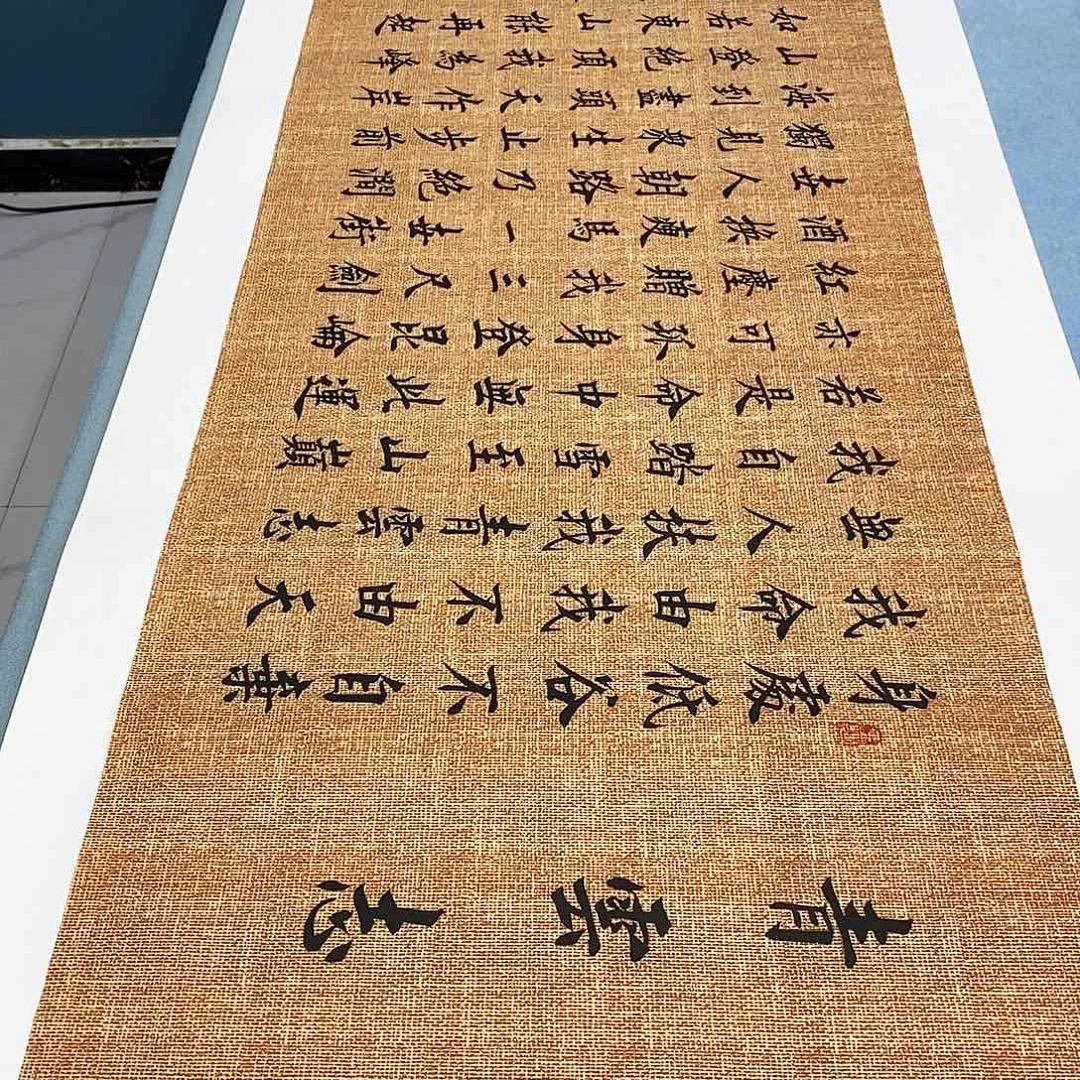 青雲志
身處低谷不自棄
我命由我不由天
無人扶我青雲志
我自踏雪至山巔
若是命中無此運
亦可孤身登昆崘
紅塵贈我三尺劍
酒換瘦馬一壺街
壺人朝路乃絕澗
獨見衆生止步前
海到盡頭天作岸
山登絕頂我為峰
如若東山能再起